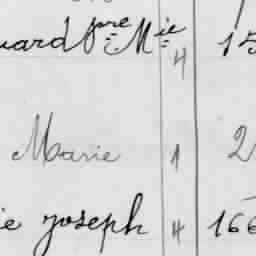 uard Pre Mie 4 15
Marie 1 2
ie joseph 4 166